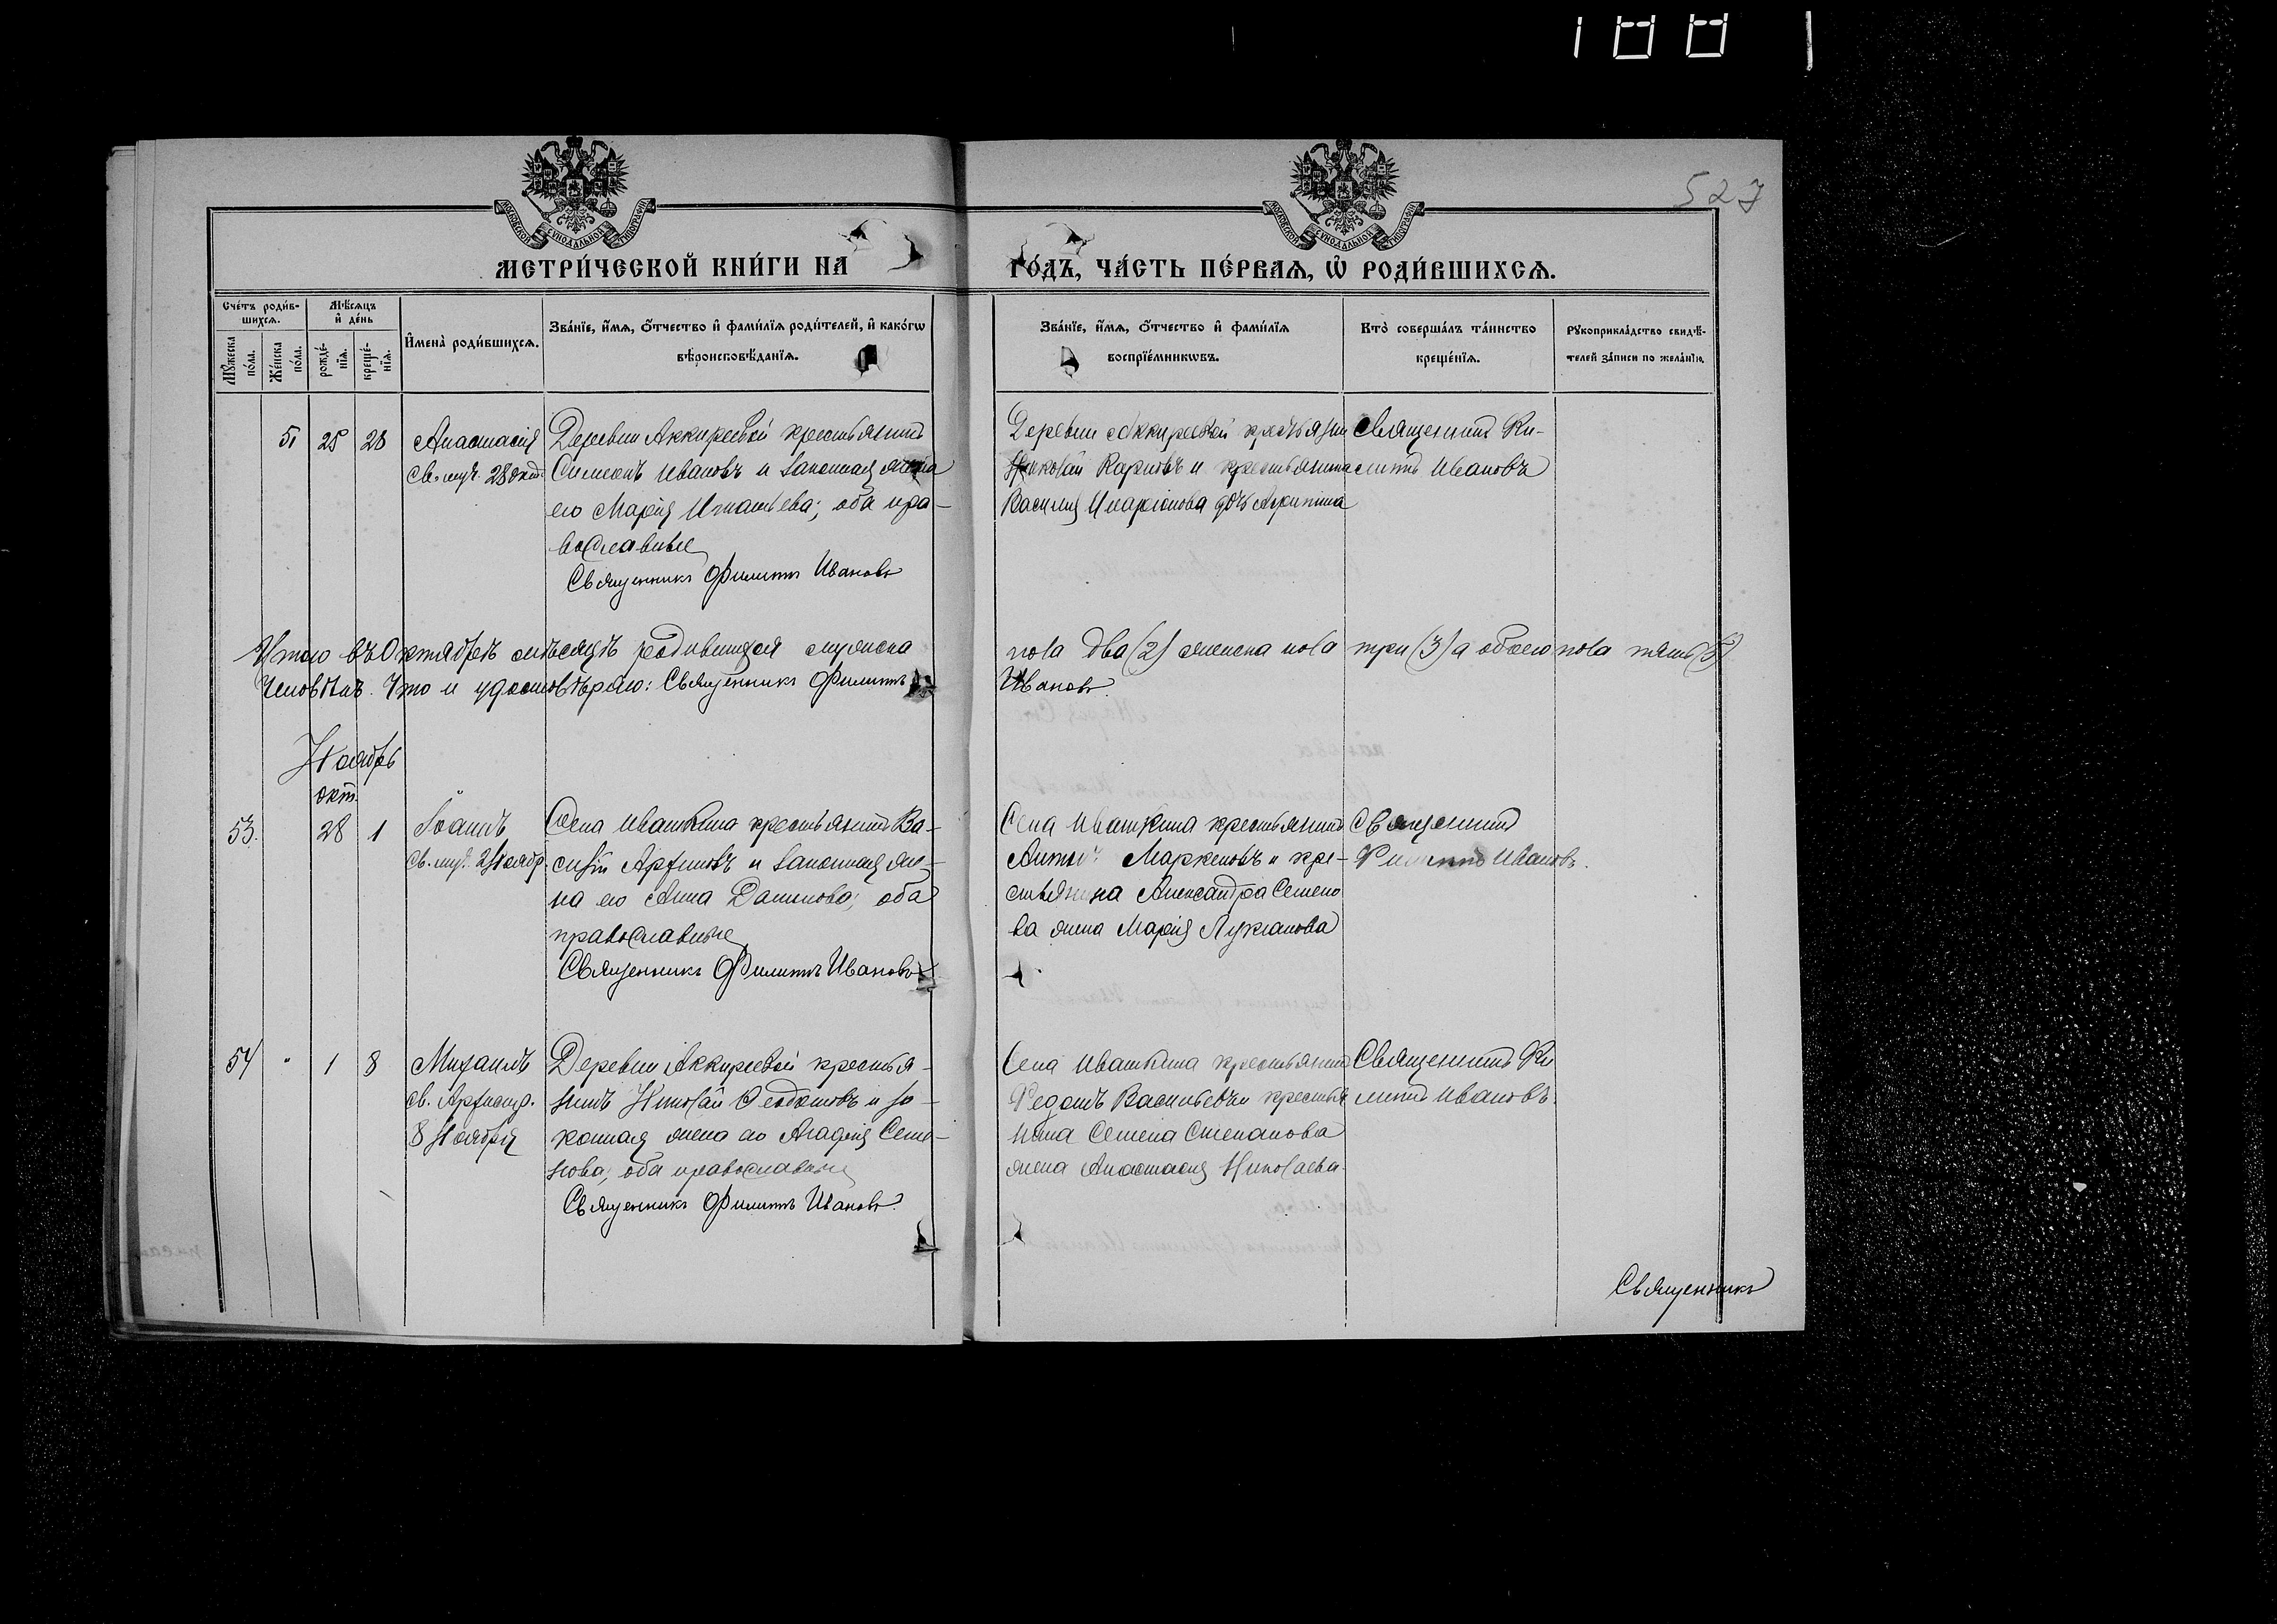 188
527
МОСКОВСКОЙ СУНОДАЛЬНОЙ ТИПОГРАФІИ
МОСКОВСКОЙ СУНОДАЛЬНОЙ ТИПОГРАФІИ
МЕТРИ́ЧЕСКОЙ КНИ́ГИ НА
ГО́ДЪ, ЧА́СТЬ ПЕ́РВАѦ, Ѡ҆ РОДИ́ВШИХСѦ.
Сче́тъ роди́в-
шихсѧ.
Мꙋ́жеска по́ла.
Же́нска по́ла.
Мѣ́сѧцъ и҆ де́нь
рожде́-
нїѧ.
креще́-
нїѧ.
И҆мена̀ роди́вшихсѧ.
Зва́нїе, и҆́мѧ, ѻ҆́тчество и҆ фами́лїѧ роди́телей, и҆ како́гѡ
вѣроисповѣ́данїѧ.
Зва́нїе, и҆́мѧ, ѻ҆́тчество и҆ фами́лїѧ
воспрїе́мникѡвъ.
Кто̀ соверша́лъ та́инство
креще́нїѧ.
Рꙋкоприкла́дство свидѣ́-
телей за́писи по жела́нїю.
51 25 28
Анастасія
Св. муч. 28 окт.
Деревни Аккиреевой крестьянинъ
Симеонъ Ивановъ и законная жена
его Марія Игнатьева; оба пра-
вославные
Священникъ Филиппъ Ивановъ
Деревни Аккиреевой
Николай Карповъ и крестьянина
Василія Иларіонова дочь
Священникъ Фи-
липпъ Ивановъ
Итого въ Октябрѣ мѣсяцѣ родившихся мужска
пола два (2) женска пола три (3) а обоего пола пять (5)
Человѣкъ. Что и удостовѣряю: Священникъ Филиппъ
Ивановъ.
Ноябрь
окт.
53. 28 1
Іоаннъ
Св. муч. 2 Ноябр.
Села Ивашкина крестьянинъ Ва-
силій и законная же-
на его Анна Данилова; оба
православные
Священникъ Филиппъ Ивановъ
Села Ивашкина крестьянинъ
Маркеловъ и кре-
стьянина Александра Семено
ва жена Марія Лукіанова
Священникъ
Филиппъ Ивановъ.
54 " 1 8
Михаилъ
Св. Архистр.
8 Ноября
Деревни Аккиреевой крестья-
нинъ Николай и за-
конная жена его Агафія Семе-
нова; оба православные
Священникъ Филиппъ Ивановъ.
Села Ивашкина крестьянинъ
Васильевъ и крестья
нина Семена Степанова
жена Анастасія Николаева.
Священникъ Фи
липпъ Ивановъ.
Священникъ